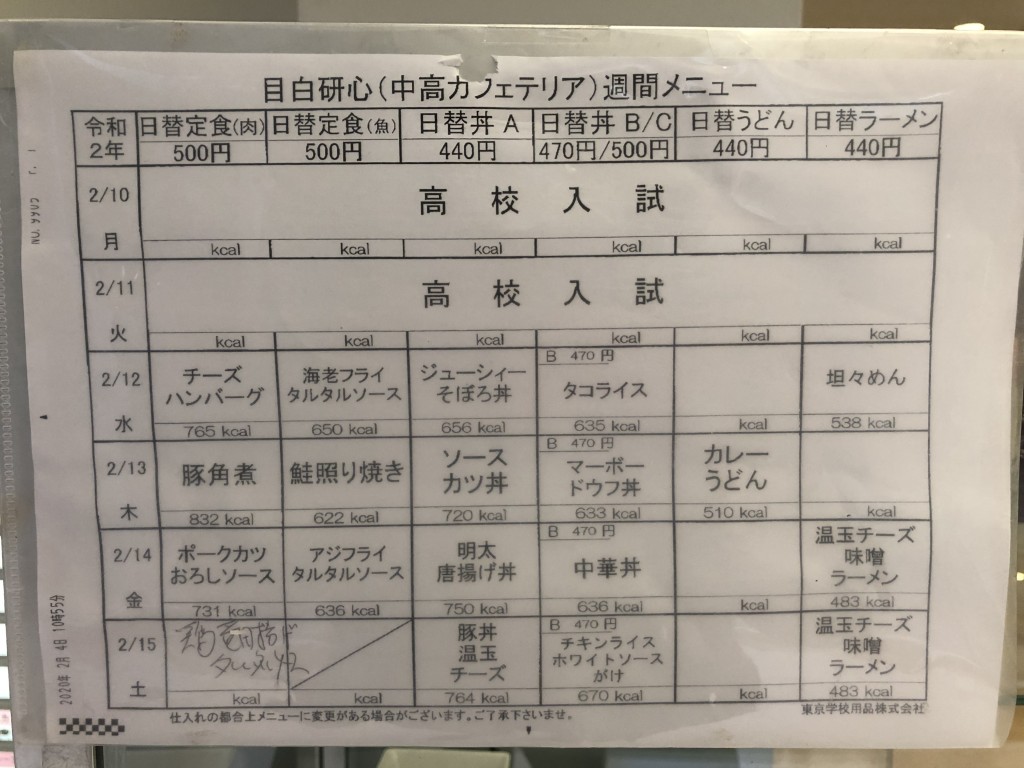 目白研心(中高カフェテリア)週間メニュー
令和2年 日替定食(肉) 日替定食(魚) 日替丼 A 日替丼 B/C 日替うどん 日替ラーメン
500円 500円 440円 470円/500円 440円 440円
2/10
月
高校入試
kcal kcal kcal kcal kcal kcal
2/11
火
高校入試
kcal kcal kcal kcal kcal kcal
2/12
水
チーズ
ハンバーグ
765 kcal
海老フライ
タルタルソース
650 kcal
ジューシィー
そぼろ丼
656 kcal
B 470 円
タコライス
635 kcal
kcal
坦々めん
538 kcal
2/13
木
豚角煮
832 kcal
鮭照り焼き
622 kcal
ソース
カツ丼
720 kcal
B 470 円
マーボー
ドウフ丼
633 kcal
カレー
うどん
510 kcal
kcal
2/14
金
ポークカツ
おろしソース
731 kcal
アジフライ
タルタルソース
636 kcal
明太
唐揚げ丼
750 kcal
B 470 円
中華丼
636 kcal
kcal
温玉チーズ
味噌
ラーメン
483 kcal
2/15
土
kcal
kcal
豚丼
温玉
チーズ
764 kcal
B 470 円
チキンライス
ホワイトソース
がけ
670 kcal
kcal
温玉チーズ
味噌
ラーメン
483 kcal
仕入れの都合上メニューに変更がある場合がございます。ご了承下さいませ。
東京学校用品株式会社
2020年 2月 4日 10時55分